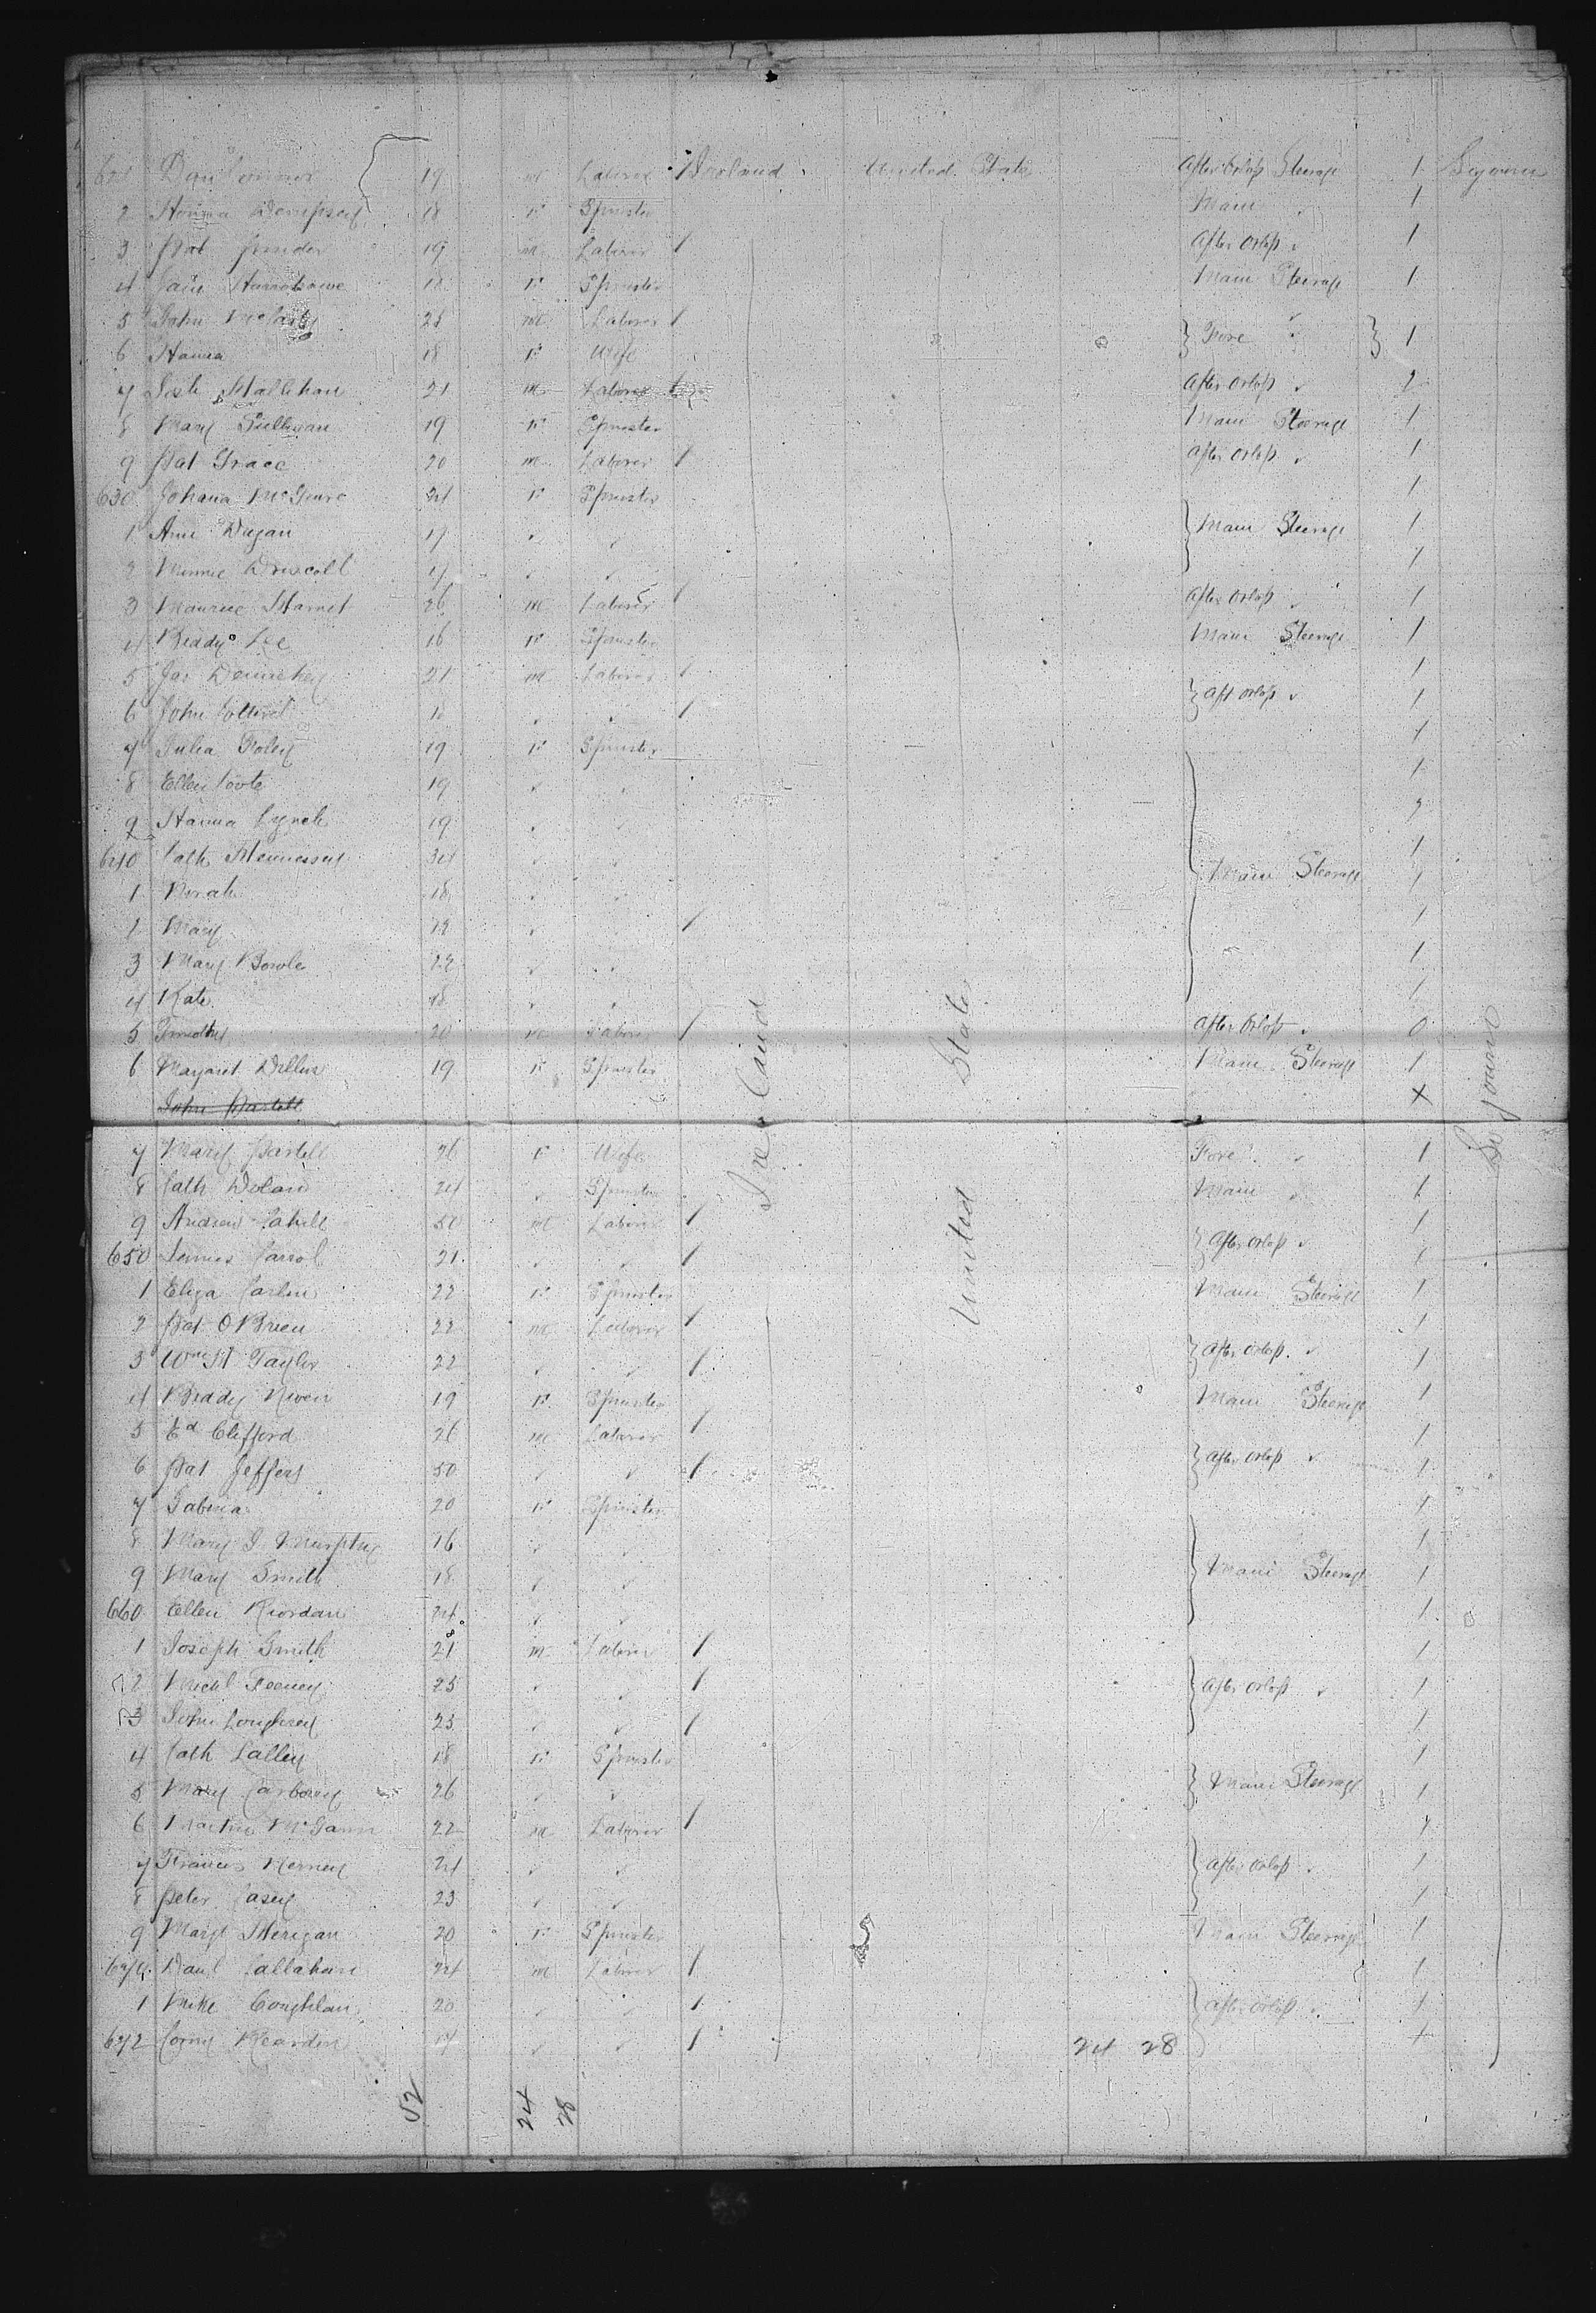 621 Danl Connor 19 m Laborer / Ireland United States After Orlop Steerage 1 Sojourn
2 Honora Dempsey 18 F Spinster Main " 1
3 Pat 19 m Laborer / After Orlop " 1
4 18 F Spinster Main Steerage 1
5 John McCarty 25 m Laborer / Fore " 1
6 Hanna 18 F Wife
7 21 m Laborer After Orlop " 1
8 Mary Sullivan 19 F Spinster Main Steerage 1
9 Pat Grace 20 m Laborer / After Orlop " 1
630 Johana McGuire 24 F Spinster 1
1 Ann Dugan 17 " " Main Steerage 1
2 Minnie Driscoll 17 " " 1
3 Maurice 26 m Laborer / After Orlop " 1
4 Biddy Lee 16 F Spinster Main Steerage 1
5 Jas 21 m Laborer / 1
6 John " " / Aft Orlop " 1
7 Julia Foley 19 F Spinster 1
8 Ellen Foote 19 " " 1
9 Hanna Lynch 19 " " 1
640 Cath Hennessey 34 " " Main Steerage 1
1 Norah 18 " " 1
2 Mary 12 " / 1
3 Mary Bowle 22 " " 1
4 Kate 18 " " 1
5 Timothy 20 m Laborer / After Orlop " 0
6 Margaret 19 F Spinster Main Steerage 1
John Partell X
7 Mary Partell 26 F Wife Fore " 1
8 Cath Dolan 24 " Spinster Main " 1
9 Andrew Cahill 50 m Laborer / 1
650 James Carrol 21 " " / After Orlop " 1
1 Eliza Carlin 22 F Spinster Main Steerage 1
2 Pat OBrien 22 m Laborer / 1
3 Wm H Taylor 22 " " / After Orlop " 1
4 Biddy Niven 19 F Spinster Main Steerage 1
5 Ed Clifford 26 m Laborer / 1
6 Pat Jeffers 50 " " / After Orlop " 1
7 Sabina 20 F Spinster 1
8 Mary J Murphy 16 " " 1
9 Mary Smith 18 " " Main Steerage 1
660 Ellen Riordan 24 " " 1
1 Joseph Smith 21 m Laborer / 1
2 Michl Feeney 25 " " / After Orlop " 1
3 John Loughrey 23 " " / 1
4 Cath Lalley 18 F Spinster 1
5 Mary 26 " " Main Steerage 1
6 Martin McGann 22 m Laborer / 1
7 Francis Kerney 24 " " After Orlop " 1
8 Peter Casey 23 " " 1
9 Margt Merigan 20 F Spinster Main Steerage 1
670 Danl Callahan 24 m Laborer / 1
1 Mike Coughlan 20 " " / After Orlop " 1
672 Corny Reardon " " / 24 28
Ireland
United States
Sojourn
52 24 28